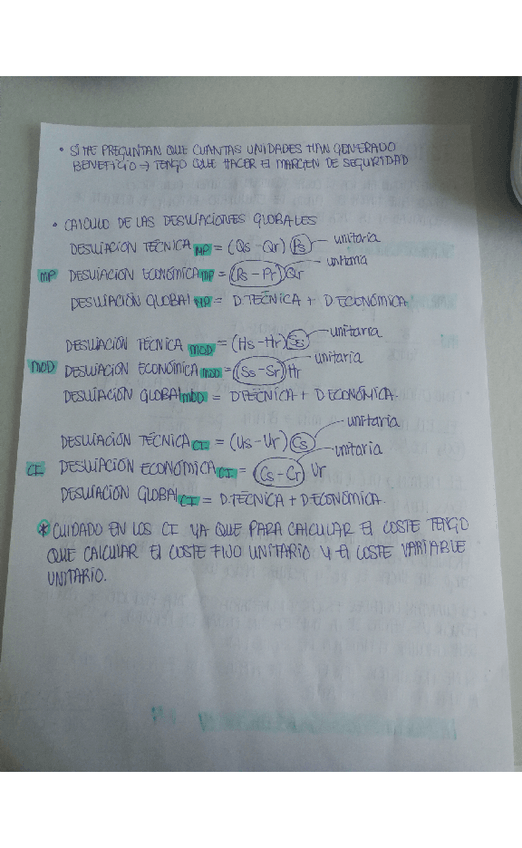 • SI ME PREGUNTAN QUE CUANTAS UNIDADES HAN GENERADO
BENEFICIO → TENGO QUE HACER EL MARGEN DE SEGURIDAD
• CALCULO DE LAS DESVIACIONES GLOBALES
DESVIACIÓN TÉCNICA MP = (Qs - Qr) Ps unitaria
MP DESVIACIÓN ECONÓMICA MP = (Ps - Pr) Qr unitaria
DESVIACIÓN GLOBAL MP = D TÉCNICA + D ECONÓMICA
DESVIACIÓN TÉCNICA MOD = (Hs - Hr) Ss unitaria
MOD DESVIACIÓN ECONÓMICA MOD = (Ss - Sr) Hr unitaria
DESVIACIÓN GLOBAL MOD = D TÉCNICA + D ECONÓMICA.
DESVIACIÓN TÉCNICA CI = (Us - Ur) Cs unitaria
CI DESVIACIÓN ECONÓMICA CI = (Cs - Cr) Ur unitaria
DESVIACIÓN GLOBAL CI = D.TÉCNICA + D.ECONÓMICA.
* CUIDADO EN LOS CI YA QUE PARA CALCULAR EL COSTE TENGO
QUE CALCULAR EL COSTE FIJO UNITARIO Y EL COSTE VARIABLE
UNITARIO.